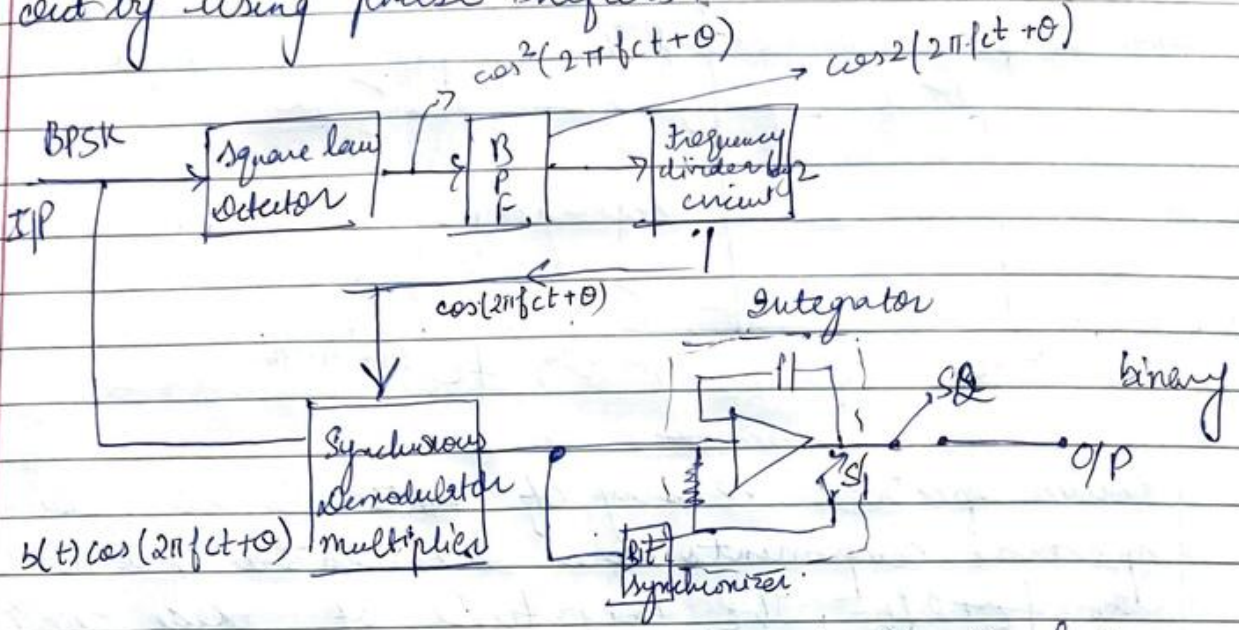 out by using phase shifters.
cos²(2πfct+θ)
cos2(2πfct+θ)
BPSK
I/P
Square law
Detector
B
P
F
Frequency
divider by 2
circuit
cos(2πfct+θ)
Integrator
Synchronous
Demodulator
multiplier
b(t)cos(2πfct+θ)
Bit
synchronizer
S1
S2
binary
O/P